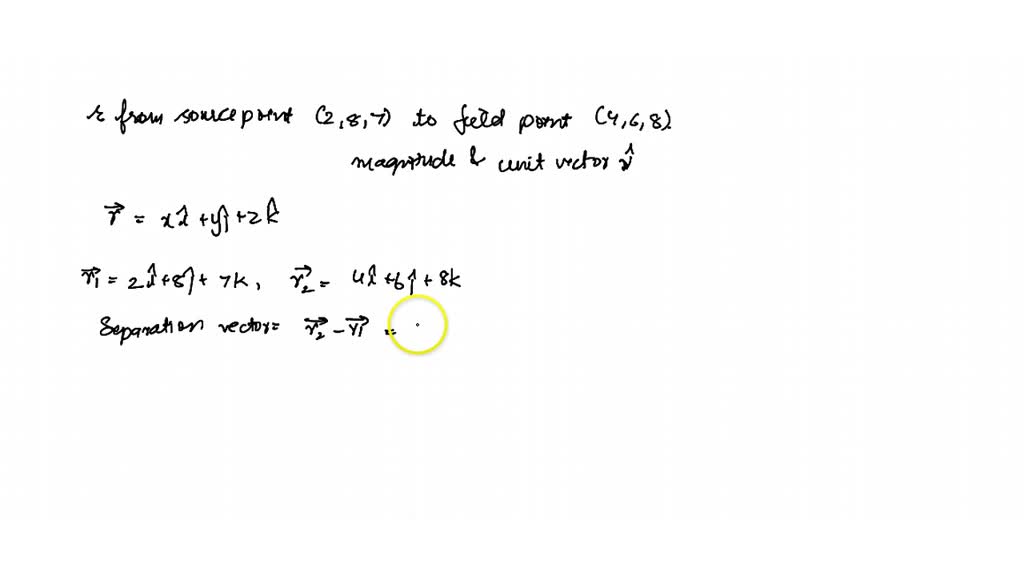 r from source point (2,8,7) to field point (4,6,8).
magnitude & unit vector r̂
r⃗ = xî + yĵ + zk̂
r⃗₁ = 2î + 8ĵ + 7k, r⃗₂ = 4î + 6ĵ + 8k
Separation vector = r⃗₂ - r⃗₁ =